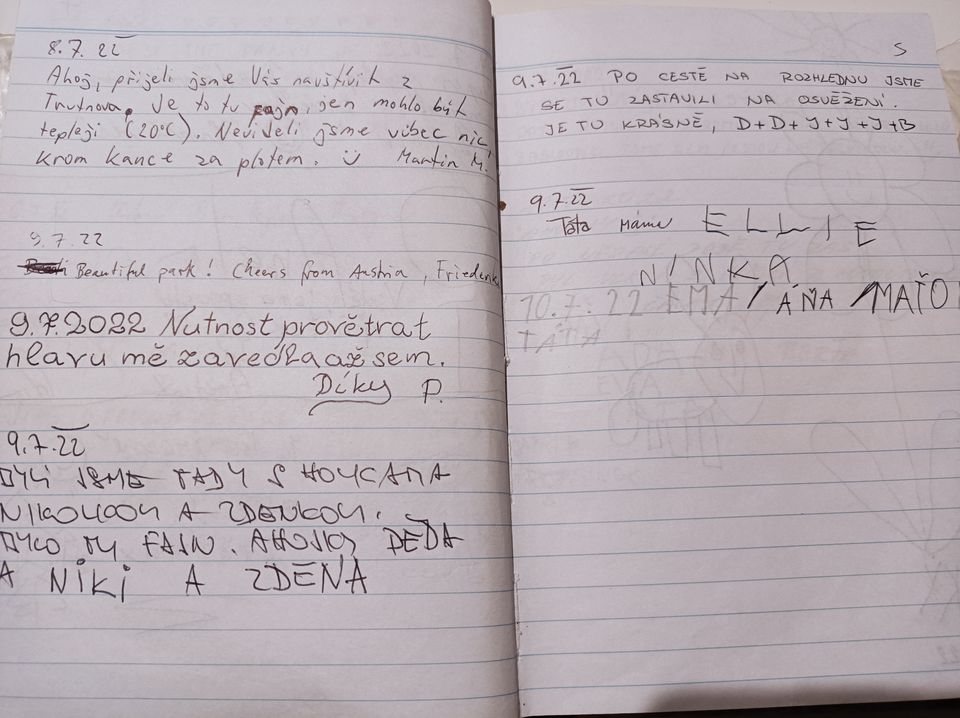 8.7.22
Ahoj, přijeli jsme Vás navštívit z
Trutnova. Je to tu fajn, jen mohlo být
tepleji (20°C). Neviděli jsme vůbec nic
krom kance za plotem. Martin M.
9.7.22
Beautiful park! Cheers from Austria, Friederike
9.7.2022 Nutnost provětrat
hlavu mě zavedla až sem.
Díky P.
9.7.22
BYLI JSME TADY S HOLKAMA
NIKOLKOU A ZDENKOU.
BYLO TU FAJN. AHOJKY DĚDA
A NIKI A ZDENA
S
9.7.22 PO CESTĚ NA ROZHLEDNU JSME
SE TU ZASTAVILI NA OSVĚŽENÍ.
JE TU KRÁSNĚ, D+D+J+J+J+B
9.7.22
Táta Máma ELLIE
NINKA
10.7.22 EMA / ÁŇA / MAŤO
TÁTA